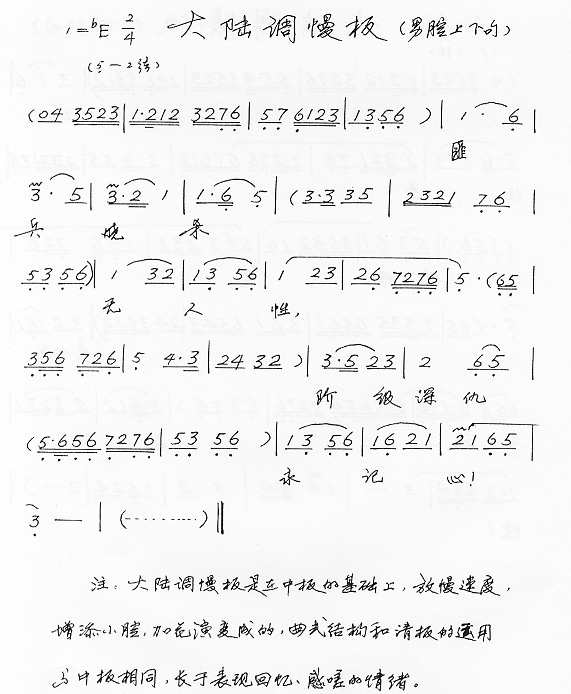 1=ᵇE 2/4 大陆调慢板 (男腔上下句)
(5—2弦)
(04 3523|1·212 3276|57 6123|1356 )|1· 6|
匪
3· 5|3·2 1|1·6 5|(3·3 35|2321 76|
兵 烧 杀
5356)|1 32|13 56|1 23|26 7276|5·(65|
无 人 性,
356 726|5 4·3|24 32 )|3·5 23|2 65|
阶 级 深 仇
(5·656 7276|53 56 )|13 56|16 21|21 65|
永 记 心!
3 — |(·········)‖
注:大陆调慢板是在中板的基础上,放慢速度,
增添小腔,加花演变成的,曲式结构和清板的运用
与中板相同,长于表现回忆、感嗟的情绪。